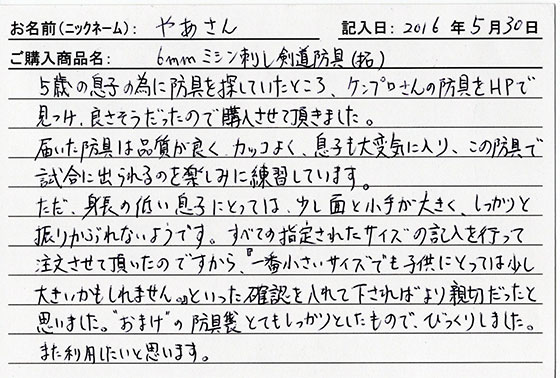 お名前(ニックネーム): やあさん 記入日: 2016 年 5月 30日
ご購入商品名: 6mmミシン刺し剣道防具(拓)
5歳の息子の為に防具を探していたところ、ケンプロさんの防具をHPで
見つけ、良さそうだったので購入させて頂きました。
届いた防具は品質が良く、カッコよく、息子も大変気に入り、この防具で
試合に出られるのを楽しみに練習しています。
ただ、身長の低い息子にとっては、少し面と小手が大きく、しっかりと
振りかぶれないようです。すべての指定されたサイズの記入を行って
注文させて頂いたのですから、『一番小さいサイズでも子供にとっては少し
大きいかもしれません。』といった確認を入れて下さればより親切だったと
思いました。"おまけ"の防具袋とてもしっかりとしたもので、びっくりしました。
また利用したいと思います。